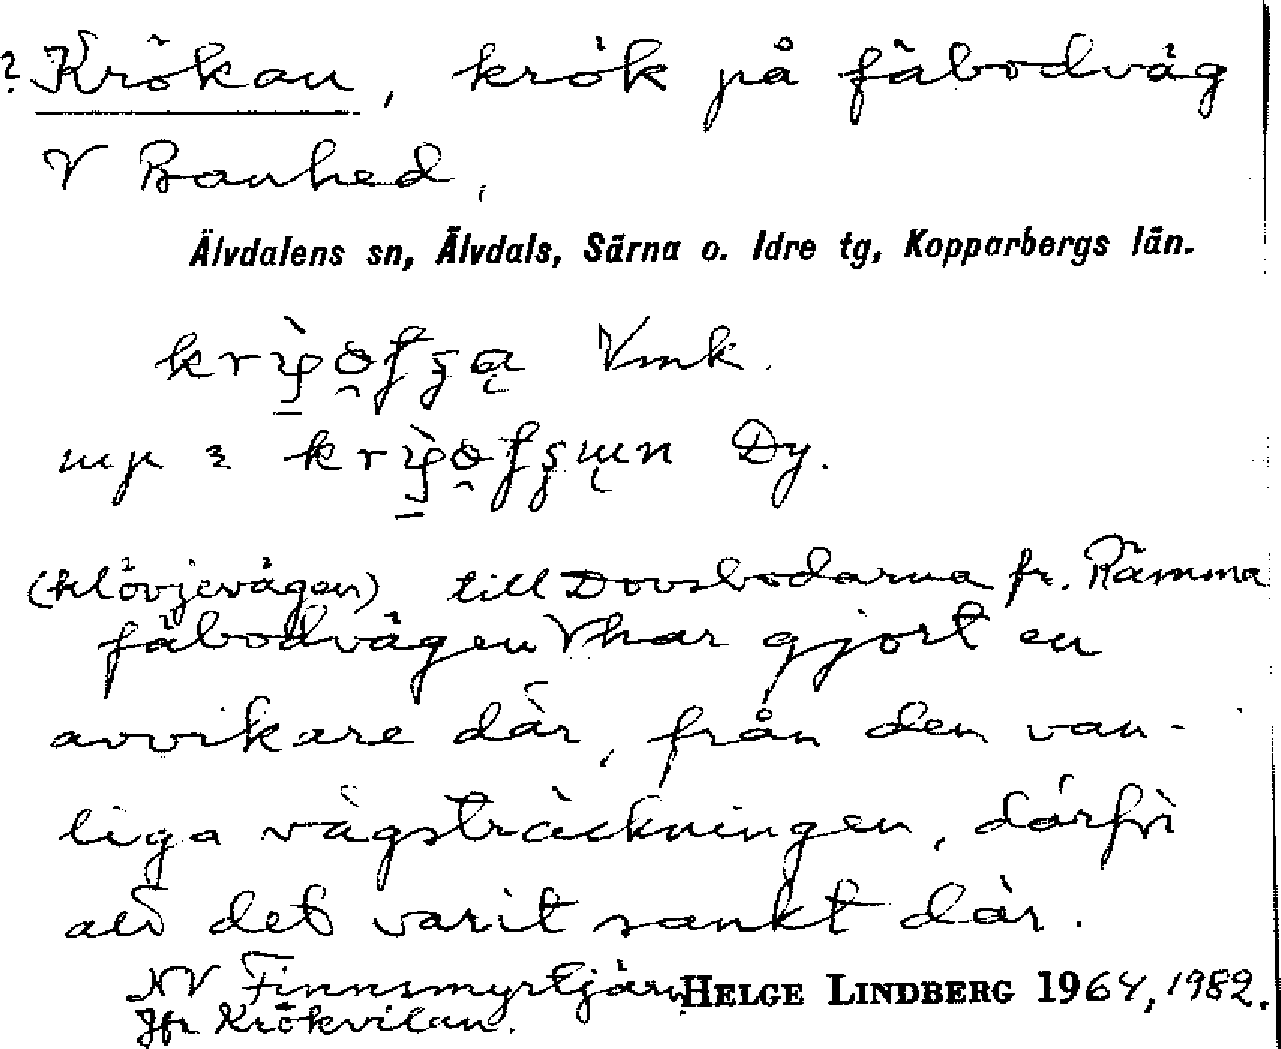 ? Krökan, krök på fäbodväg
V Banhed,
Älvdalens sn, Älvdals, Särna o. Idre tg, Kopparbergs län.
Vmk.
Dy.
(klövjevägen) till Dovsbodarna fr. Rämma
fäbodvägen V har gjort en
avvikare där, från den van-
liga vägsträckningen, därför
att det varit sankt där.
NV Finnsmyrtjärn, HELGE LINDBERG 1964, 1982.
Jfr Krökvilan.